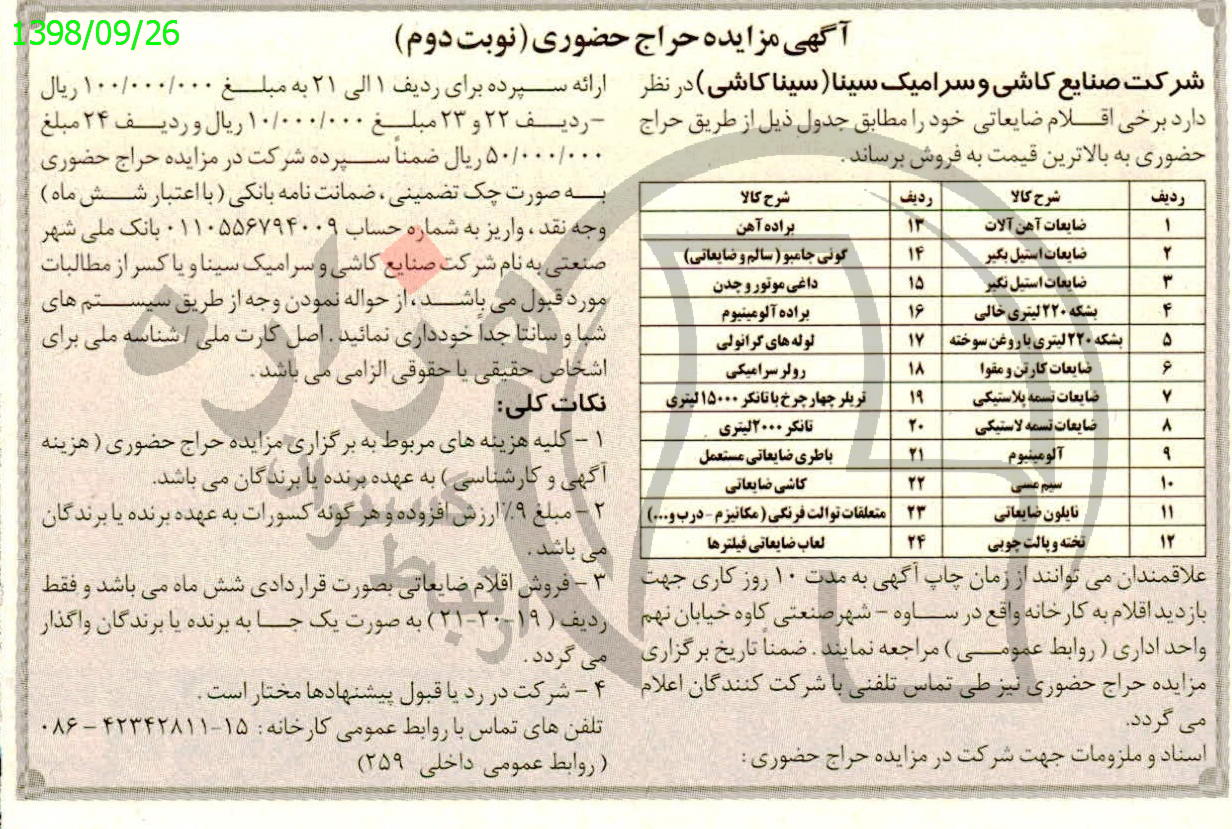 1398/09/26
آگهی مزایده حراج حضوری (نوبت دوم)
شرکت صنایع کاشی و سرامیک سینا (سینا کاشی) در نظر
دارد برخی اقـــلام ضایعاتی خود را مطابق جدول ذیل از طریق حراج
حضوری به بالاترین قیمت به فروش برساند.
ردیف شرح کالا ردیف شرح کالا
۱ ضایعات آهن آلات ۱۳ براده آهن
۲ ضایعات استیل بگیر ۱۴ گونی جامبو (سالم و ضایعاتی)
۳ ضایعات استیل نگیر ۱۵ داغی موتور و چدن
۴ بشکه ۲۲۰ لیتری خالی ۱۶ براده آلومینیوم
۵ بشکه ۲۲۰ لیتری با روغن سوخته ۱۷ لوله های گرانولی
۶ ضایعات کارتن و مقوا ۱۸ رولر سرامیکی
۷ ضایعات تسمه پلاستیکی ۱۹ تریلر چهار چرخ با تانکر ۱۵۰۰۰ لیتری
۸ ضایعات تسمه لاستیکی ۲۰ تانکر ۲۰۰۰ لیتری
۹ آلومینیوم ۲۱ باطری ضایعاتی مستعمل
۱۰ سیم مسی ۲۲ کاشی ضایعاتی
۱۱ نایلون ضایعاتی ۲۳ متعلقات توالت فرنگی (مکانیزم - درب و...)
۱۲ تخته و پالت چوبی ۲۴ لعاب ضایعاتی فیلترها
علاقمندان می توانند از زمان چاپ آگهی به مدت ۱۰ روز کاری جهت
بازدید اقلام به کارخانه واقع در ســـاوه - شهر صنعتی کاوه خیابان نهم
واحد اداری (روابط عمومـــی) مراجعه نمایند. ضمناً تاریخ برگزاری
مزایده حراج حضوری نیز طی تماس تلفنی با شرکت کنندگان اعلام
می گردد.
اسناد و ملزومات جهت شرکت در مزایده حراج حضوری:
ارائه ســـپرده برای ردیف ۱ الی ۲۱ به مبلـــغ ۱۰۰/۰۰۰/۰۰۰ ریال
-ردیـــف ۲۲ و ۲۳ مبلـــغ ۱۰/۰۰۰/۰۰۰ ریال و ردیـــف ۲۴ مبلغ
۵۰/۰۰۰/۰۰۰ ریال ضمناً ســـپرده شرکت در مزایده حراج حضوری
بـــه صورت چک تضمینی، ضمانت نامه بانکی (با اعتبار شـــش ماه)
وجه نقد، واریز به شماره حساب ۰۱۱۰۵۵۶۷۹۴۰۰۹ بانک ملی شهر
صنعتی به نام شرکت صنایع کاشی و سرامیک سینا و یا کسر از مطالبات
مورد قبول می باشـــد، از حواله نمودن وجه از طریق سیســـتم های
شبا و سانتا جداً خودداری نمائید. اصل کارت ملی / شناسه ملی برای
اشخاص حقیقی یا حقوقی الزامی می باشد.
نکات کلی:
۱ - کلیه هزینه های مربوط به برگزاری مزایده حراج حضوری (هزینه
آگهی و کارشناسی) به عهده برنده یا برندگان می باشد.
۲ - مبلغ ۹٪ ارزش افزوده و هر گونه کسورات به عهده برنده یا برندگان
می باشد.
۳ - فروش اقلام ضایعاتی بصورت قراردادی شش ماه می باشد و فقط
ردیف (۱۹-۲۰-۲۱) به صورت یک جـــا به برنده یا برندگان واگذار
می گردد.
۴ - شرکت در رد یا قبول پیشنهادها مختار است.
تلفن های تماس با روابط عمومی کارخانه: ۱۵-۴۲۳۴۲۸۱۱ - ۰۸۶
(روابط عمومی داخلی ۲۵۹)